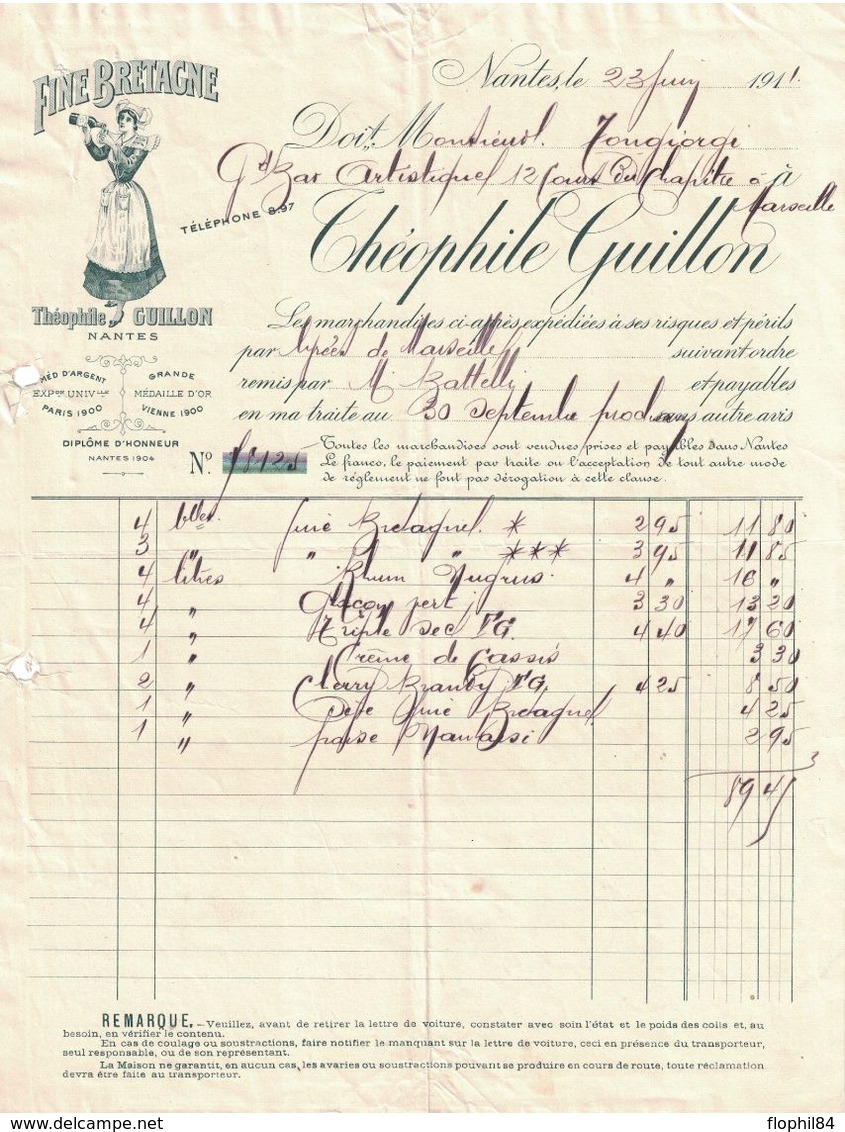 FINE BRETAGNE
Théophile GUILLON
NANTES
MÉD D'ARGENT
EXPON UNIVLLE
PARIS 1900
GRANDE
MÉDAILLE D'OR
VIENNE 1900
DIPLÔME D'HONNEUR
NANTES 1904
TÉLÉPHONE 8.97
Nantes, le 23 Juin 1911.
Doit Monsieur Tongiorgi
Gd Bar Artistique 12 Cours du Chapitre à
Marseille
à
Théophile Guillon
Les marchandises ci-après expédiées à ses risques et périls
par de Marseille suivant ordre
remis par Mr Battelli et payables
en ma traite au 30 Septembre prochain sans autre avis
No 18125
Toutes les marchandises sont vendues prises et payables dans Nantes
Le franco, le paiement par traite ou l'acceptation de tout autre mode
de réglement ne font pas dérogation à cette clause.
4 blles Fine Bretagne * 2 95 11 80
3 " " " *** 3 95 11 85
4 litres Rhum 4 " 16 "
4 " vert 3 30 13 20
4 " Triple Sec TG. 4 40 17 60
1 " Crème de Cassis 3 30
2 " Cherry Brandy TG. 4 25 8 50
1 " Fine Bretagne 4 25
1 " 2 95
89 45
REMARQUE. — Veuillez, avant de retirer la lettre de voiture, constater avec soin l'état et le poids des colis et, au
besoin, en vérifier le contenu.
En cas de coulage ou soustractions, faire notifier le manquant sur la lettre de voiture, ceci en présence du transporteur,
seul responsable, ou de son représentant.
La Maison ne garantit, en aucun cas, les avaries ou soustractions pouvant se produire en cours de route, toute réclamation
devra être faite au transporteur.
www.delcampe.net
flophil84